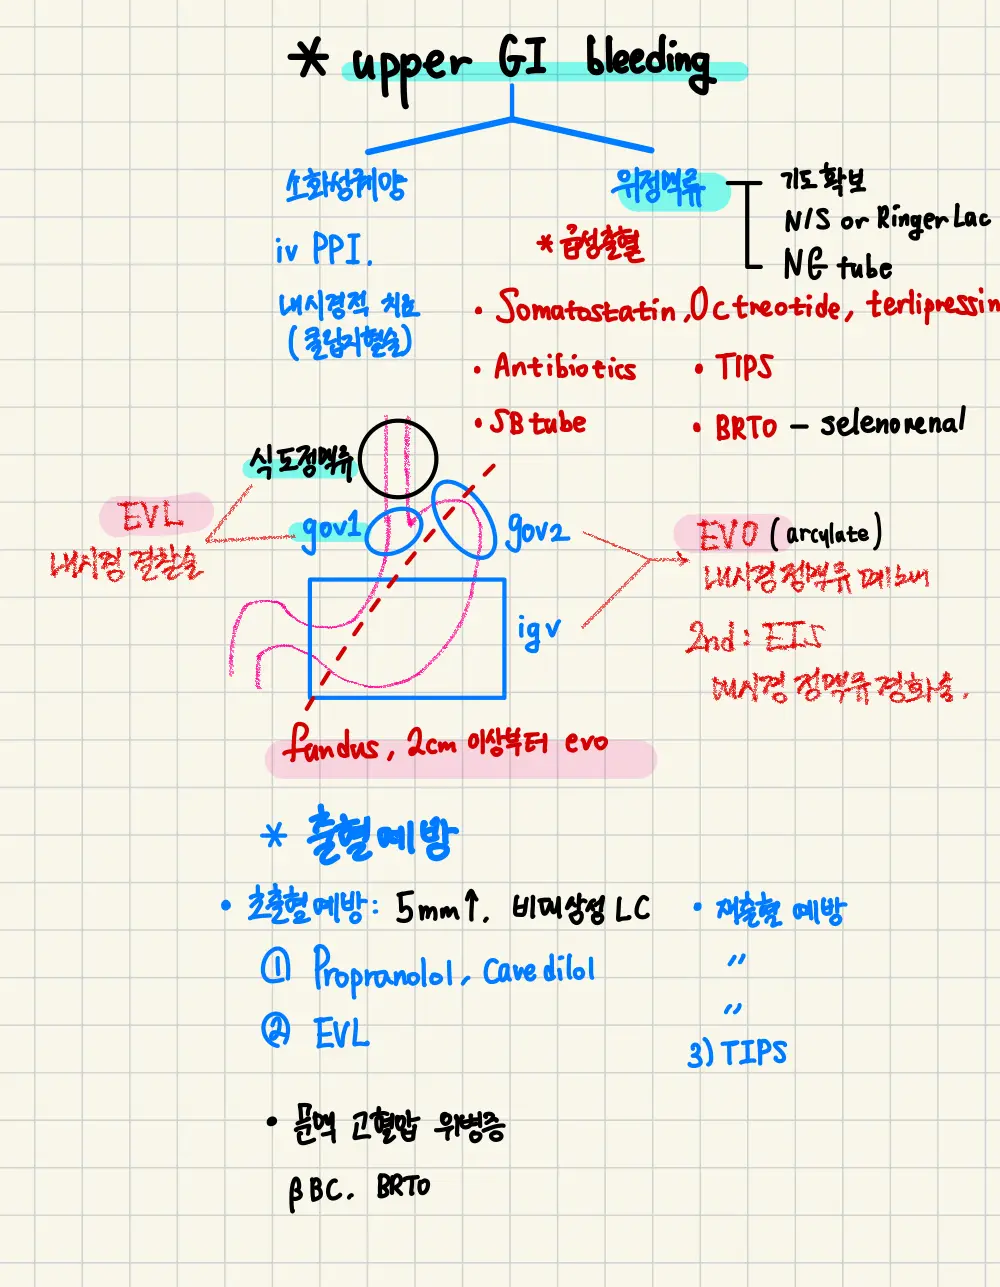 * upper GI bleeding
소화성궤양
iv PPI.
내시경적 치료
(클립지혈술)
위정맥류
기도확보
N/S or Ringer Lac
NG tube
* 급성출혈
• Somatostatin, Octreotide, terlipressin
• Antibiotics
• TIPS
• SB tube
• BRTO – selenorenal
식도정맥류
EVL
내시경 결찰술
gov1
gov2
igv
EVO (arcylate)
내시경 정맥류 폐쇄
2nd : EIS
내시경 정맥류 경화술.
fundus, 2cm 이상부터 evo
* 출혈예방
• 초출혈예방: 5mm↑. 비대상성 LC
① Propranolol, Cavedilol
② EVL
• 재출혈 예방
〃
〃
3) TIPS
• 문맥 고혈압 위병증
βBC. BRTO